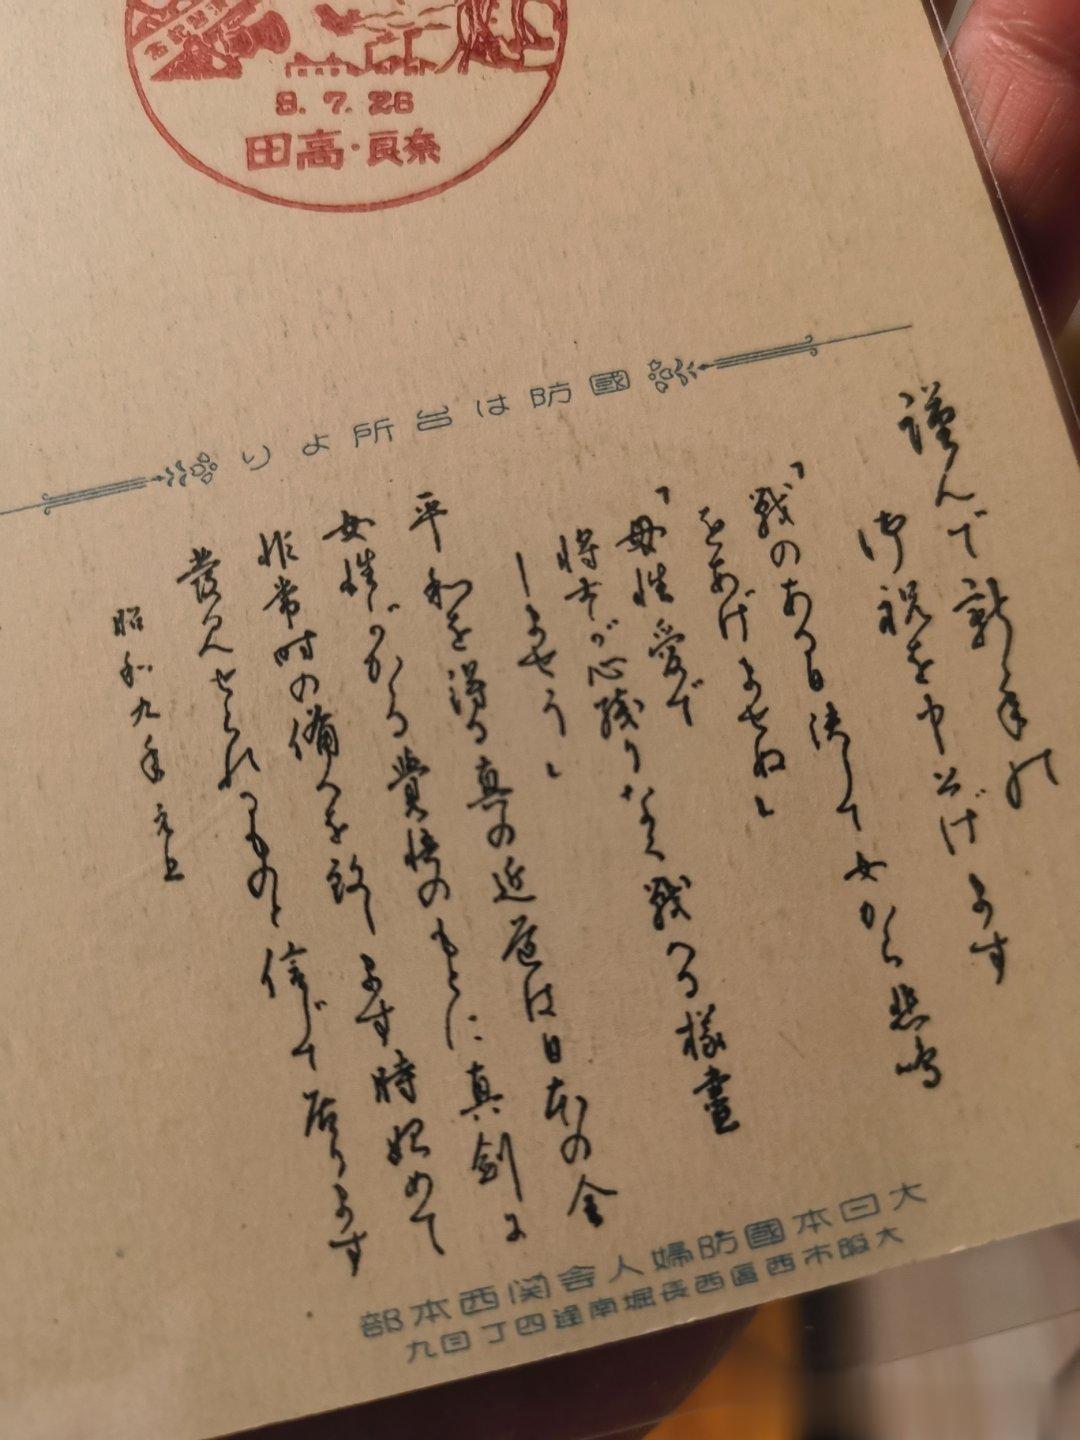 9.7.26
田高・良奈
り よ 所 台 は 防 國
謹んで新年の
御祝を申上げます
「戦のある日決して女から悲鳴
をあげませぬ」
「母性愛で
将士が心残りなく戦へる様尽
しませう」
平和を得る真の近道は日本の全
女性がかゝる覚悟のもとに真剣に
非常時の備へを致します時始めて
発見せられるものと信じて居ります
昭和九年元旦
部本西関会人婦防國本日大
九目丁四通南堀長西區西市阪大